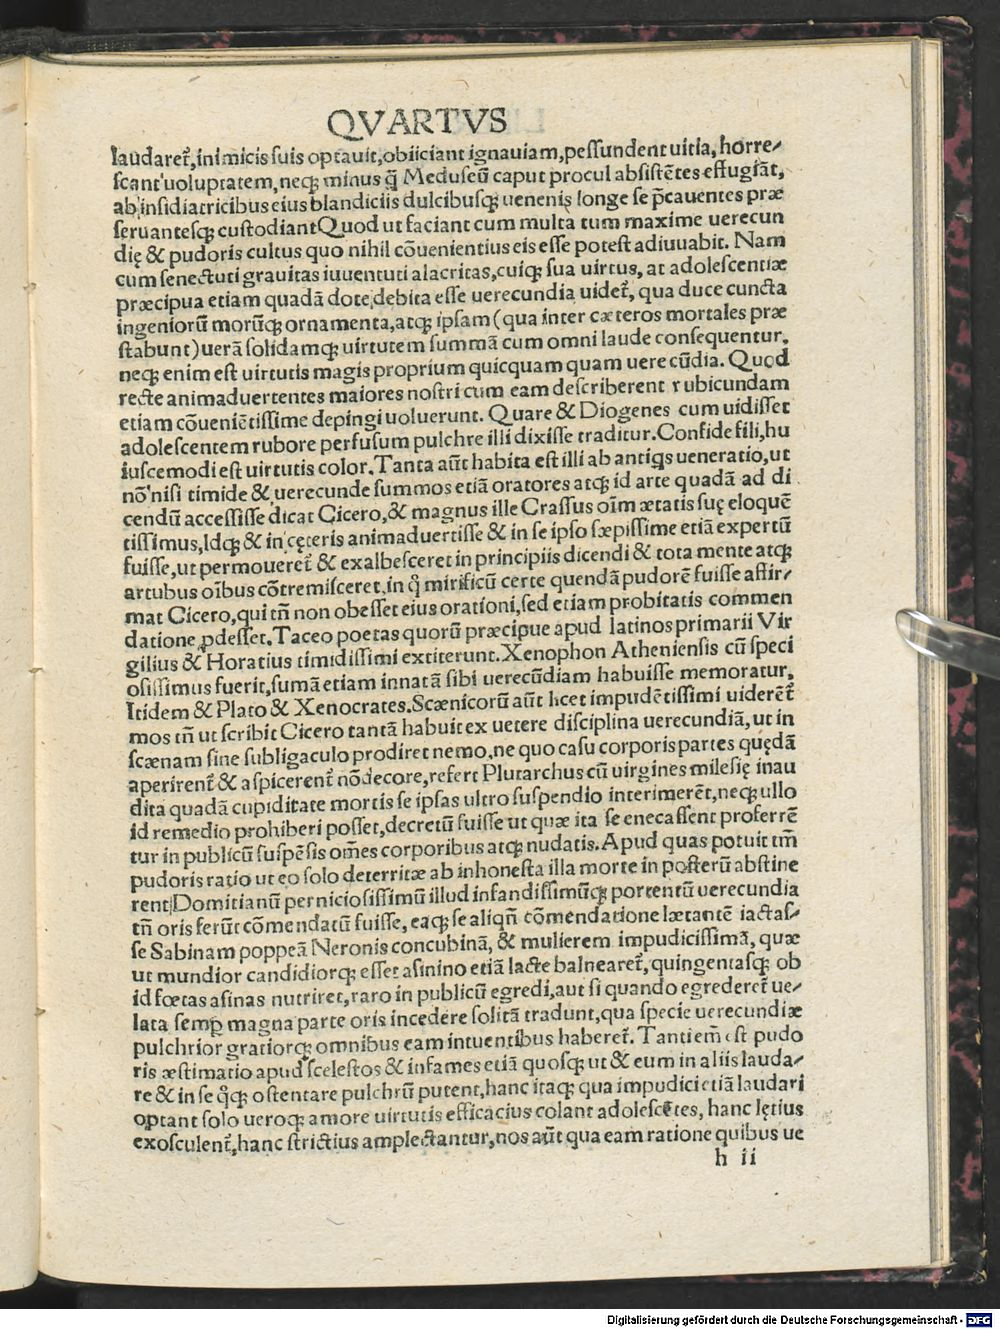 QVARTVS
laudaret᷑,inimicis suis optauit,obiiciant ignauiam,pessundent uitia, horre⸗
scant uoluptatem,neqꝫ minus q̃ Meduseū caput procul absistētes effugiāt,
ab insidiatricibus eius blandiciis dulcibusqꝫ uenenis longe se p̄cauentes præ
seruantesqꝫ custodiantQuod ut faciant cum multa tum maxime uerecun
dię & pudoris cultus quo nihil cōuenientius eis esse potest adiuuabit. Nam
cum senectuti grauitas iuuentuti alacritas,cuiqꝫ sua uirtus, at adolescentiæ
præcipua etiam quadā dote debita esse uerecundia uidet᷑, qua duce cuncta
ingeniorū morūqꝫ ornamenta,atqꝫ ipsam (qua inter cæteros mortales præ
stabunt)uerā solidamqꝫ uirtutem summā cum omni laude consequentur.
neqꝫ enim est uirtutis magis proprium quicquam quam uerecūdia. Quod
recte animaduertentes maiores nostri cum eam describerent rubicundam
etiam cōueniētissime depingi uoluerunt. Quare & Diogenes cum uidisset
adolescentem rubore perfusum pulchre illi dixisse traditur.Confide fili,hu
iuscemodi est uirtutis color.Tanta aūt habita est illi ab antiqs ueneratio,ut
nō nisi timide & uerecunde summos etiā oratores atqꝫ id arte quadā ad di
cendū accessisse dicat Cicero,& magnus ille Crassus oīm ætatis suę eloquē
tissimus,Idqꝫ & in cęteris animaduertisse & in se ipso sæpissime etiā expertū
fuisse,ut permoueret᷑ & exalbesceret in principiis dicendi & tota mente atqꝫ
artubus oībus cōtremisceret,in q̊ mirificū certe quendā pudorē fuisse affir⸗
mat Cicero,qui tñ non obesset eius orationi,sed etiam probitatis commen
datione ꝓdesset.Taceo poetas quorū præcipue apud latinos primarii Vir
gilius & Horatius timidissimi extiterunt.Xenophon Atheniensis cū speci
osissimus fuerit,sumā etiam innatā sibi uerecūdiam habuisse memoratur.
Itidem & Plato & Xenocrates.Scænicorū aūt licet impudētissimi uiderēt᷑
mos tñ ut scribit Cicero tantā habuit ex uetere disciplina uerecundiā,ut in
scænam sine subligaculo prodiret nemo,ne quo casu corporis partes quędā
aperirent᷑ & aspicerent᷑ nō decore,refert Plutarchus cū uirgines milesię inau
dita quadā cupiditate mortis se ipsas ultro suspendio interimerēt,neqꝫ ullo
id remedio prohiberi posset,decretū fuisse ut quæ ita se enecassent proferrē
tur in publicū suspēsis om̄es corporibus atqꝫ nudatis.Apud quas potuit tm̄
pudoris ratio ut eo solo deterritæ ab inhonesta illa morte in posterū abstine
rent Domitianū perniciosissimū illud infandissimūqꝫ portentū uerecundia
tñ oris ferūt cōmendatū fuisse, eaqꝫ se aliqñ cōmendatione lætantē iactas⸗
se Sabinam poppeā Neronis concubinā, & mulierem impudicissimā, quæ
ut mundior candidiorqꝫ esset asinino etiā lacte balnearet᷑, quingentasqꝫ ob
id fœtas asinas nutriret,raro in publicū egredi,aut si quando egrederet᷑ ue⸗
lata semꝑ magna parte oris incedere solitā tradunt,qua specie uerecundiæ
pulchrior gratiorqꝫ omnibus eam intuentibus haberet᷑. Tanti em̄ est pudo
ris æstimatio apud scelestos & infames etiā quosqꝫ ut & eum in aliis lauda⸗
re & in se q̊qꝫ ostentare pulchrū putent,hanc itaqꝫ qua impudici etiā laudari
optant solo ueroqꝫ amore uirtutis efficacius colant adolescētes, hanc lętius
exosculent᷑,hanc strictius amplectantur,nos aūt qua eam ratione quibus ue
h ii
Digitalisierung gefördert durch die Deutsche Forschungsgemeinschaft - DFG